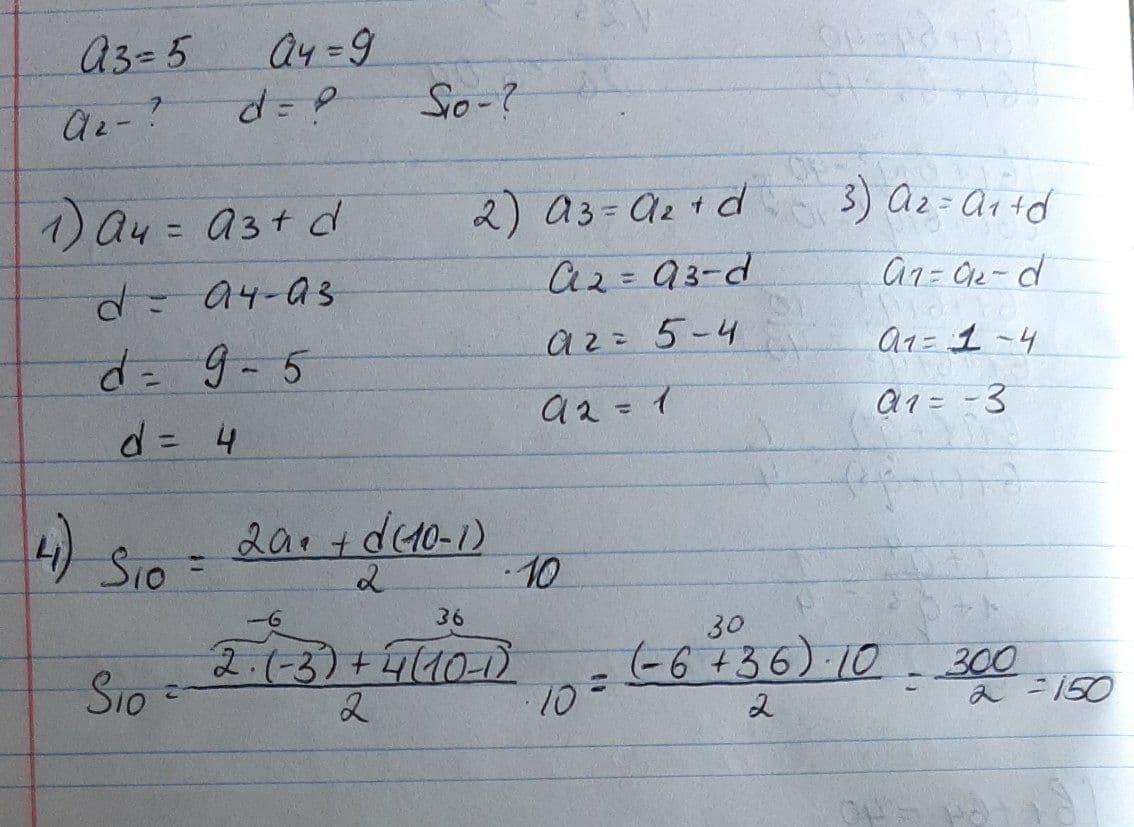 a3=5 a4=9
a2-? d=? S10-?
1) a4 = a3 + d
d = a4-a3
d = 9 - 5
d = 4
2) a3 = a2 + d
a2 = a3-d
a2 = 5-4
a2 = 1
3) a2 = a1+d
a1 = a2-d
a1 = 1 -4
a1 = -3
4) S10 = (2a1 + d(10-1))/2 · 10
-6 36 30
S10 = (2·(-3)+4(10-1))/2 · 10 = ((-6+36)·10)/2 = 300/2 = 150